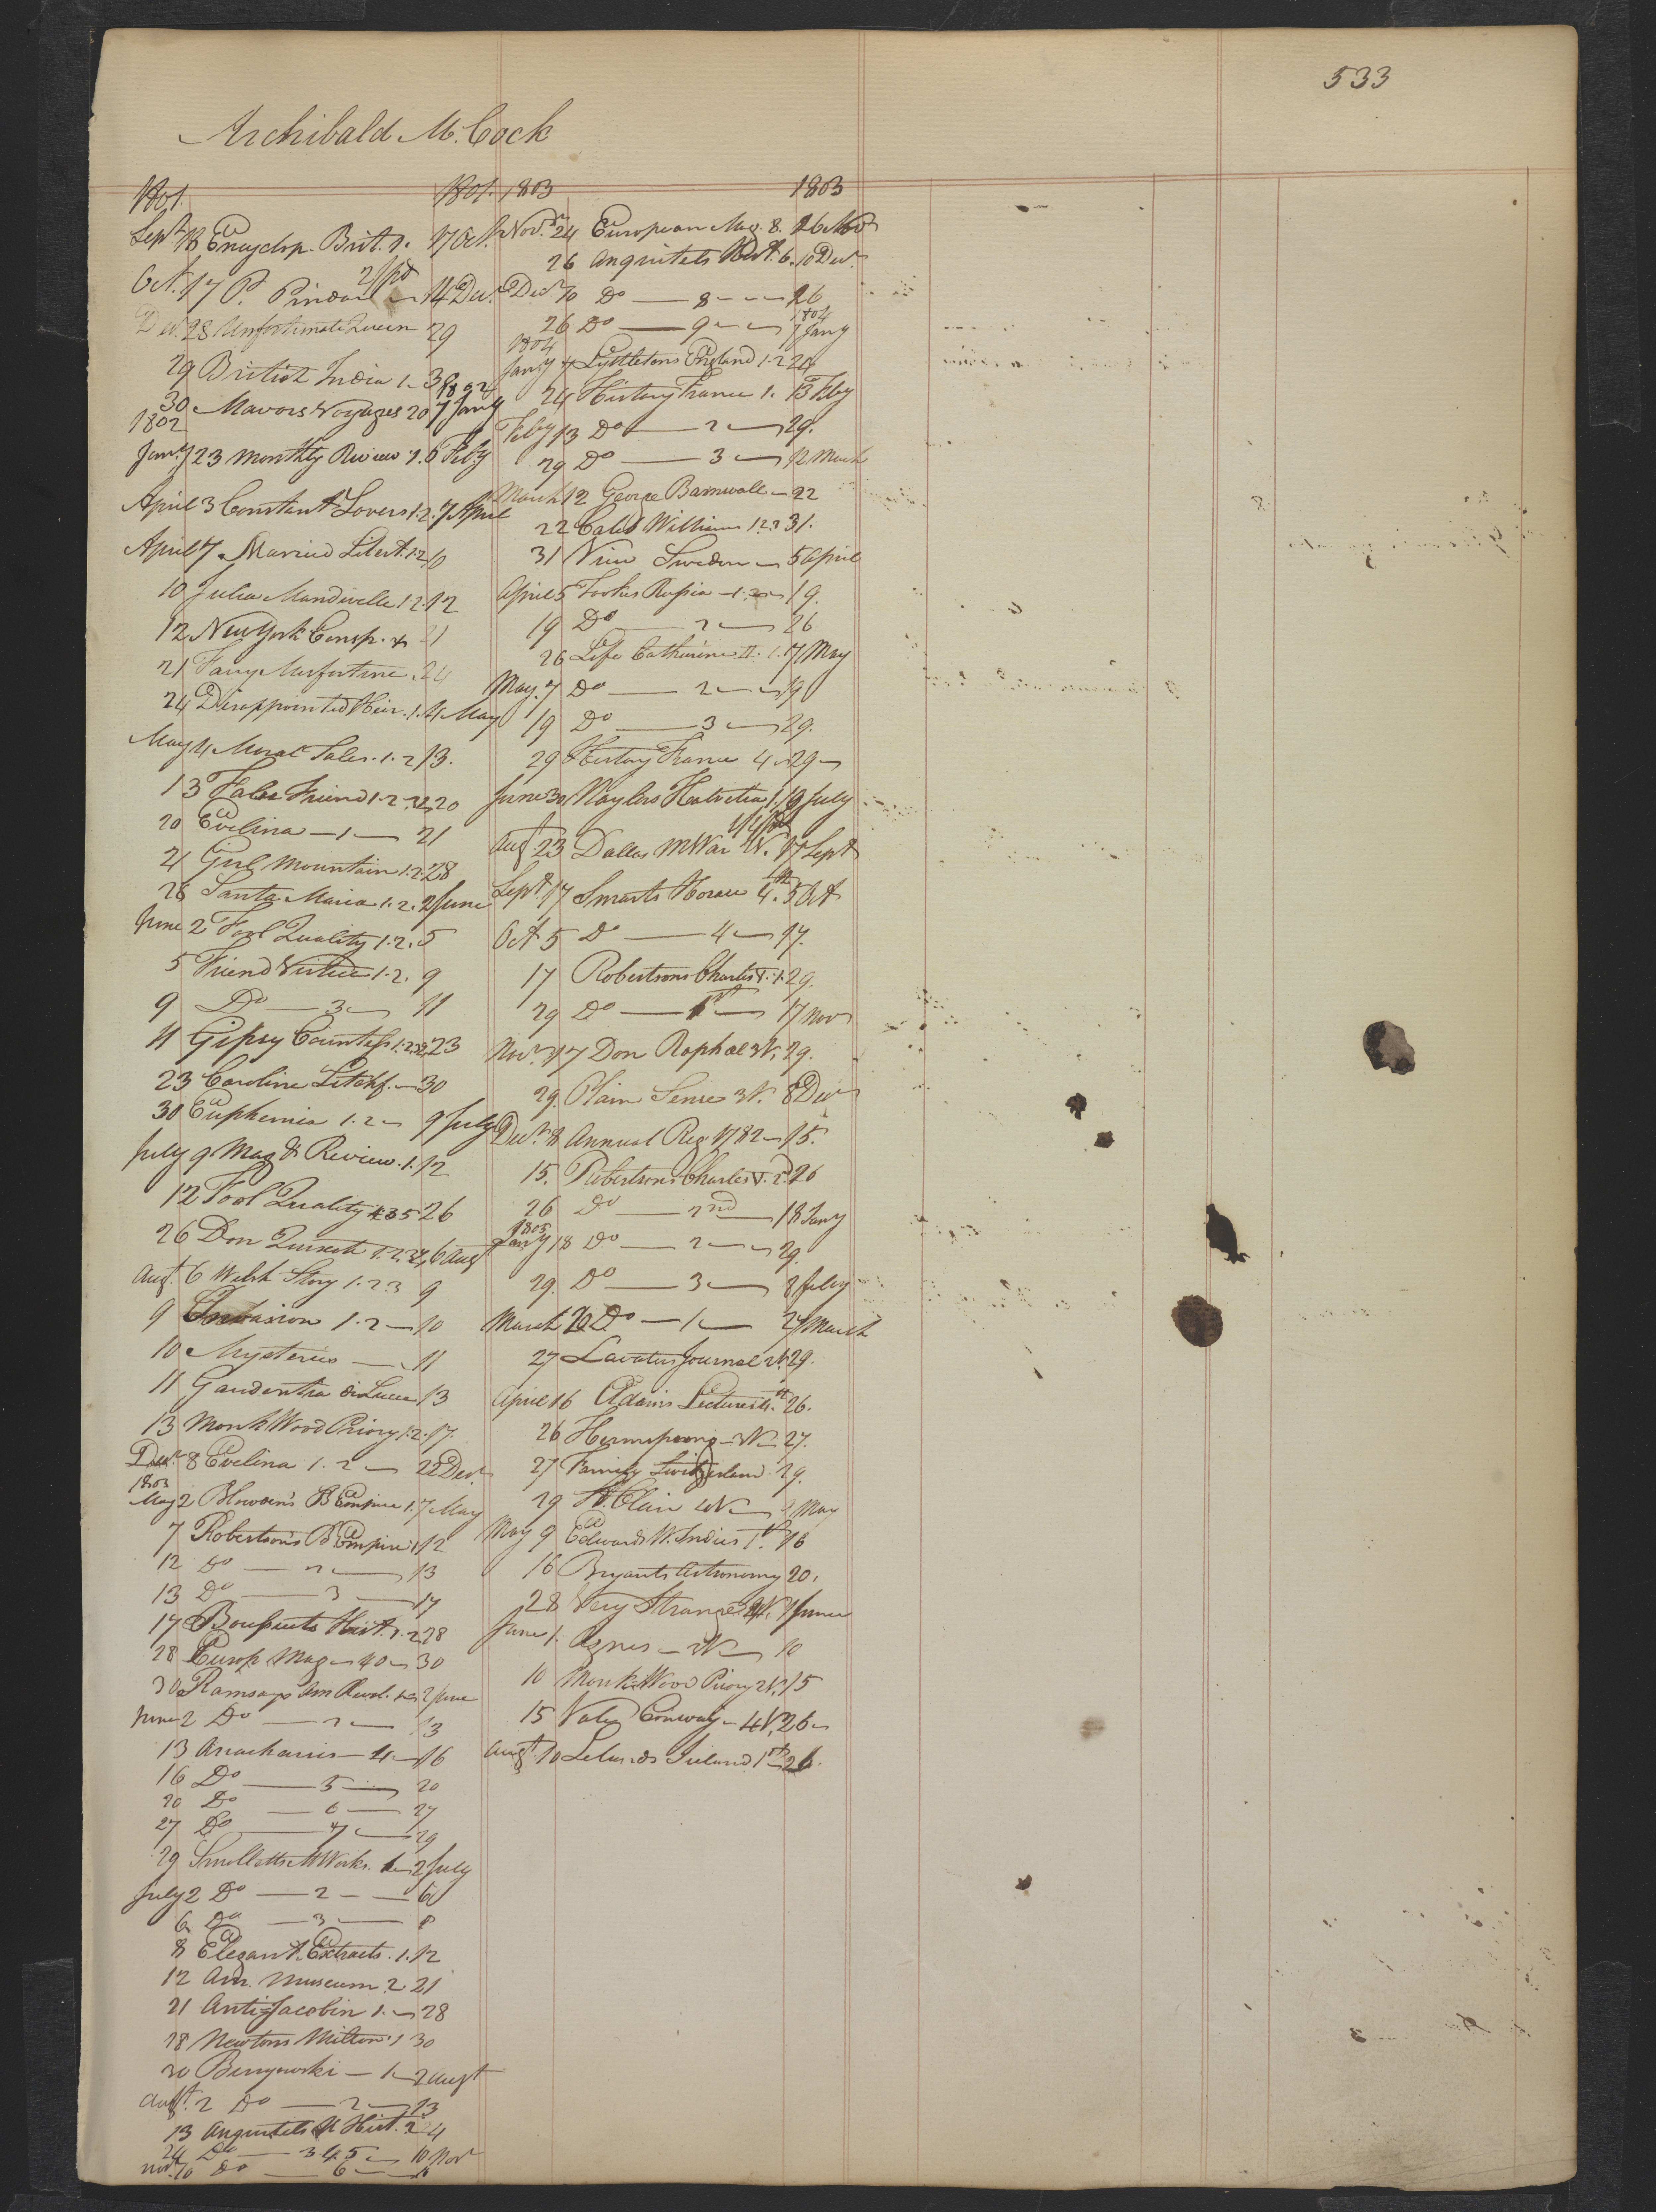 533
Archibald McCock
1801. 1801.
Sept. 18 Encyclop. Brit. 1. 17 Oct.
Oct. 17 P. Pindar 14 Decr.
Decr. 28 Unfortunate Queen 29
29 British India 1. 3
1802
30 Mavors Voyages 20 7 Jany
1802
Jany 23 Monthly Review 1. 6 Feby
April 3 Constant Lovers 1.2. 7 April
April 7 Married Libert. 1.2 10
10 Julia Mandivelle 1.2. 12
12 New York Consp. 21
21 Fany Misfortune. 24
24 Disappointed Heir. 1. 4 May
May 4 Moral Tales. 1.2 13.
13 False Friend 1.2. 20
20 Evelina — 1 — 21
21 Girl Mountain 1.2. 28
28 Santa Maria 1.2. 2 June
June 2 Fool Quality 1.2. 5
5 Friend Virtue 1.2. 9
9 Do — 3 — 11
11 Gipsy Countess 1.2. 23
23 Caroline Litchf. — 30
30 Euphemia 1.2 — 9 July
July 9 Mag & Review. 1. 12
12 Fool Quality 4 3 5 26
26 Don Quixote 1.2. 6 Aug
Augt. 6 Welsh Story 1.2 3 9
9 Invasion 1.2 — 10
10 Mysteries — 11
11 Gaudentia di Lucca 13
13 Monk Wood Priory 1.2. 17.
Decr 8 Evelina 1. 2 — 22 Decr.
1803
May 2 B Empire 1. 7 May
7 Robertson's B Empire 1 12
12 Do — 2 — 13
13 Do — 3 — 17
17 Hist. 1.2 28
28 Europ Mag — 40 — 30
30 Ramsays Am Revol. 2 June
June 2 Do — 2 — 13
13 Anacharsis — 4 — 16
16 Do — 5 — 20
20 Do — 6 — 27
27 Do — 7 — 29
29 Smolletts M Works. 1 — 2 July
July 2 Do — 2 — 6
6 Do — 3 — 8
8 Elegant Extracts. 1. 12
12 Am. Museum 2. 21
21 Anti-Jacobin 1. — 28
28 Newtons Milton 1 30
30 Benyowski — 1 — 2 Augt
Augt. 2 Do — 2 — 13
13 Anquitels U Hist. 2 24
24 Do — 3 4 5 — 10 Nov
Nov. 10 Do — 6 —
1803 1803
Novr. 24 European Mag. 8. 26 Nov
26 Anquitels Hist. 6. 10 Decr.
Decr 10 Do — 8 — 26
1804
26 Do — 9 — 7 Jany
1804
Jany 7 Lyttletons England 1.2 24
24 History France 1. 13 Feby
Feby 13 Do — 2 — 29.
29 Do — 3 — 12 March
March 12 George Barnwall — 22
22 Caleb Williams 1.2.3 31.
31 View Sweden — 5 April
April 5 Tookes Russia — 1 — 19.
19 Do — 2 — 26
26 Life Catharine II. 1. 7 May
May. 7 Do — 2 — 19
19 Do — 3 — 29.
29 History France 4 — 29 —
June 30 Naylers Helvetia 1. 19 July
Augt. 23 Dallas M War 17 Sept
Sept 17 Smarts Horace 4. 5 Oct
Oct 5 Do — 4 — 17.
17 Robertsons Charles V. 1. 29.
29 Do — 1st — 17 Nov
Novr. 17 Don Raphael 3V. 29.
29. Plain Sense 3V. 8 Decr
Decr. 8 Annual Reg. 1782 — 15.
15. Robertsons Charles V. 2. 26
26 Do — 2nd — 18 Jany
1805
Jany 18 Do — 2 — 29.
29. Do — 3 — 8 Feby
March 20 Do — 1 — 27 March
27 Lavaters Journal 29.
April 16 Adams Lectures 26.
26 Hermsprong — 27.
27 Family Switzerland. 29.
29 St. Clair May
May 9 Edwards W. Indies 1st 16
16 Bryants Astronomy 20.
28 Very Strange 1 June
June 1. Agnes — — 10
10 Monk Wood Priory 2V. 15
15 Conway — 4V. 26 —
Augt. 10 Lelands Ireland 1st 26.